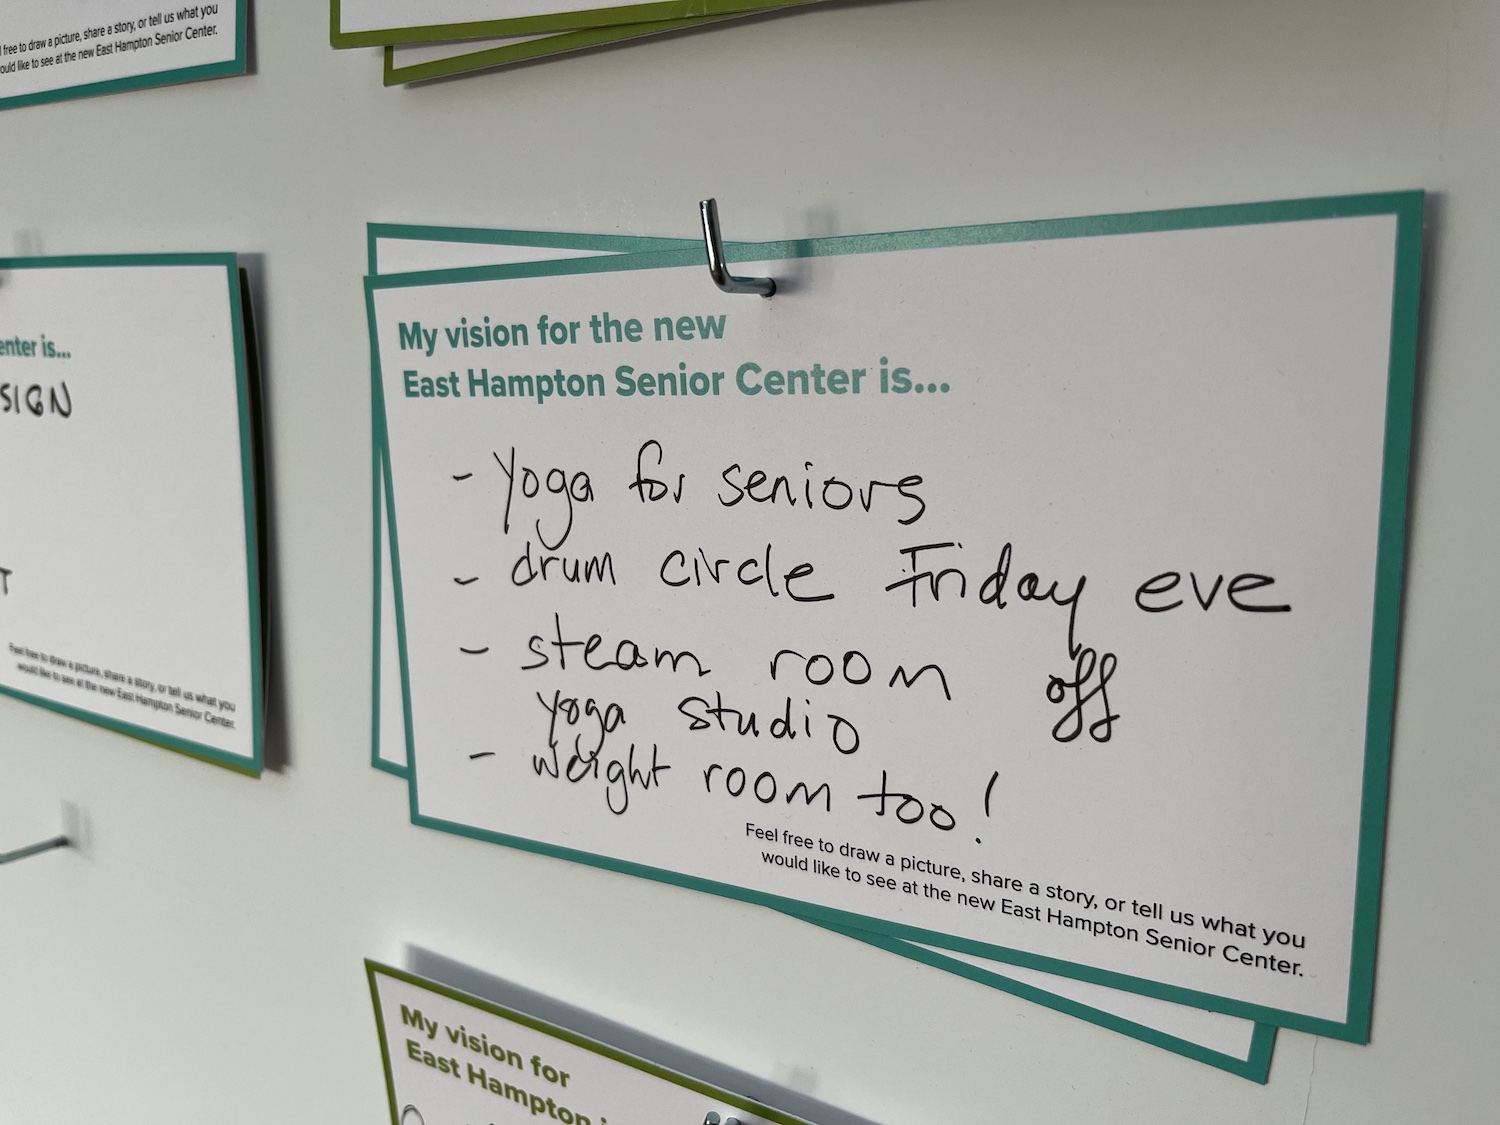 free to draw a picture, share a story, or tell us what you
ould like to see at the new East Hampton Senior Center.
enter is...
SIGN
T
Feel free to draw a picture, share a story, or tell us what you
would like to see at the new East Hampton Senior Center.
My vision for the new
East Hampton Senior Center is...
- Yoga for seniors
- drum circle Friday eve
- steam room off
yoga studio
- weight room too!
Feel free to draw a picture, share a story, or tell us what you
would like to see at the new East Hampton Senior Center.
My vision for
East Hampton